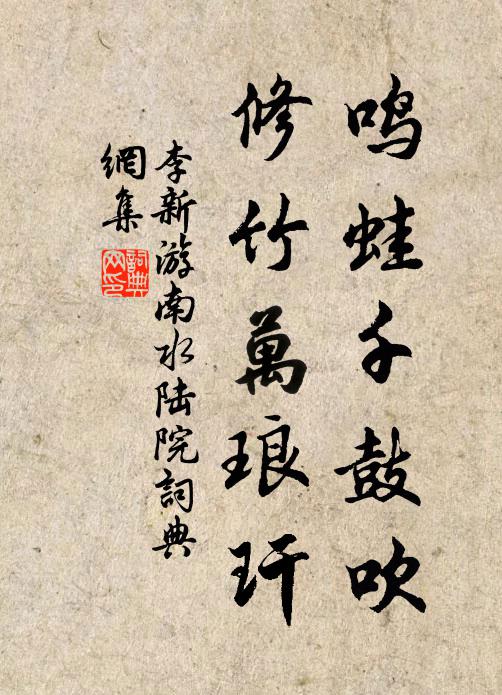 鸣蛙千鼓吹
修竹萬琅玕
李新游南水陆院詞典
網集
詞典
网印